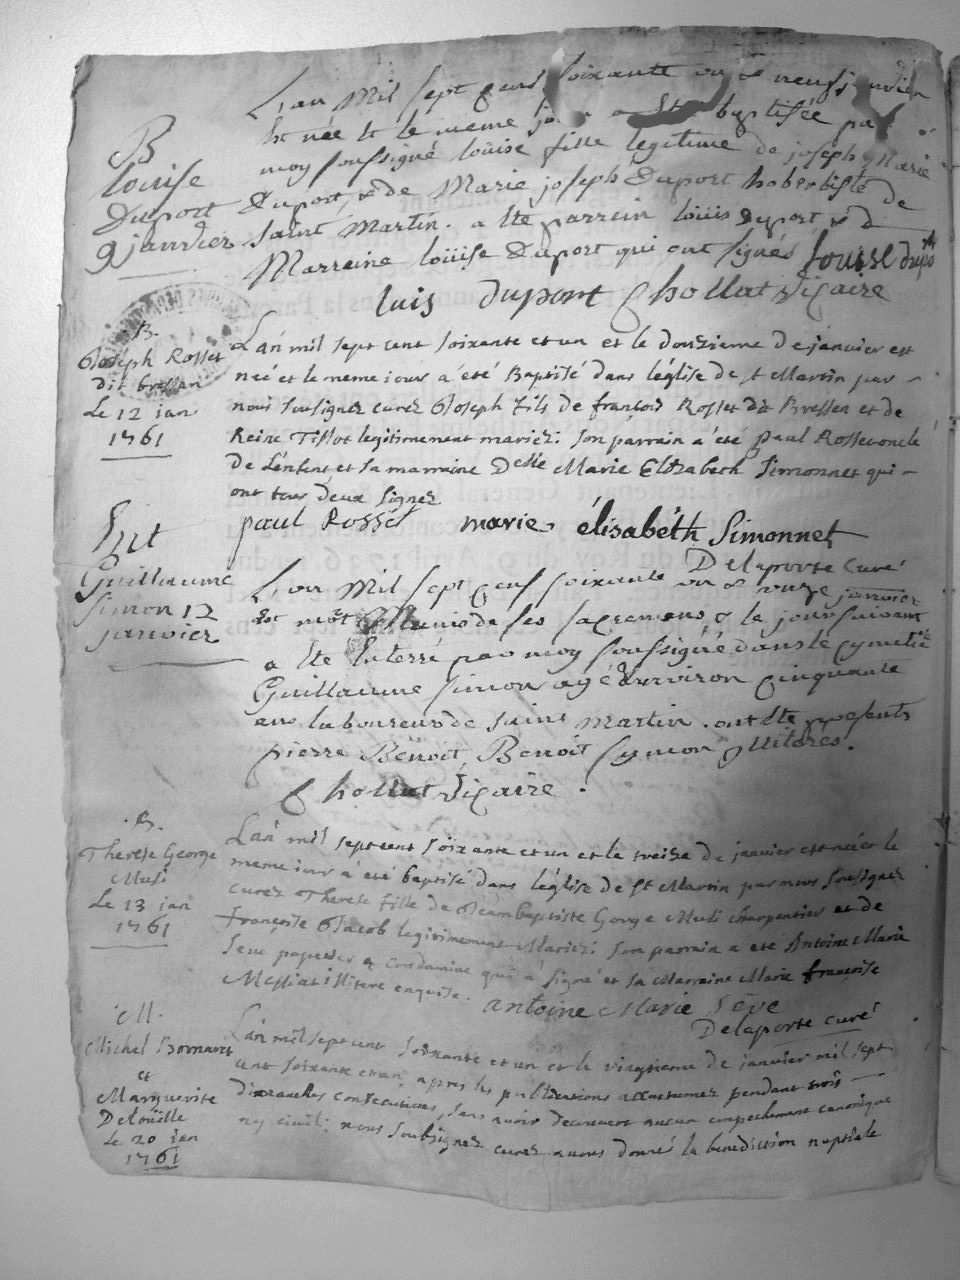 B
Louise
Duport
9 janvier
L'an Mil sept cens soixante un & neuf janvier
Est née & le meme jour a Eté baptisée par
moy soussigné Loüise fille legitime de joseph Marie
Duport, & de Marie joseph Duport de
saint Martin. a Eté parrein Loüis Duport & 
Marreine Loüise Duport qui ont signés Louise dupo
luis dupont Chollat Vicaire
B.
Joseph Rosset
dit bressan
Le 12 jan
1761
L'an mil sept cent soixante et un et le douzieme de janvier est
neé et le meme iour a été Baptisé dans l'église de st Martin par
nous sousignez curez Joseph fils de françois Rosset dit Bressen et de
Reine Tissot legitimement mariez: son parrain a été paul Rosset oncle
de L'enfent et sa marraine Delle Marie Elizabeth Simonnet qui
ont tous deux signez
paul Rosset marie élisabéth Simonnet
Delaporte curé
Ent
Guillaume
simon 12
janvier
L'an Mil sept cens soixante un & onze janvier
Est mort Munis de ses sacremens & le jour suivant
a Eté Enterré par moy soussigné dans le cymetie
Guillaume simon agé d'environ cinquante
ans laboureur de saint Martin. ont Eté presents
pierre Benoit, Benoit symon illiteres.
Chollat Vicaire.
B.
Therese George
Musi
Le 13 jan
1761
L'an mil sept cent soixante et un et le treize de janvier est neé et le
meme iour a été baptisé dans l'église de st Martin par nous sousignez
curez Therese fille de Jeam baptiste George Musi charpentier et de
françoise Jacob legitimement Mariez: son parrain a été Antoine Marie
Seve papetier a Condamine qui a signé et sa Marraine Marie françoise
Messiat illitere enquise. antoine Marie Seve
Delaporte curé
M.
Michel Bornaret
et
Marguerite
Deloüille
Le 20 jan
1761
L'an mil sept cent soixante et un et le vingtieme de janvier mil sept
cent soixante et un, apres les publications accoutumez pendant trois
dimanches consecutives, sans avoir decouvert aucun empechement canonique
ny civil; nous soubsignez curez avons donné la benediction nuptiale